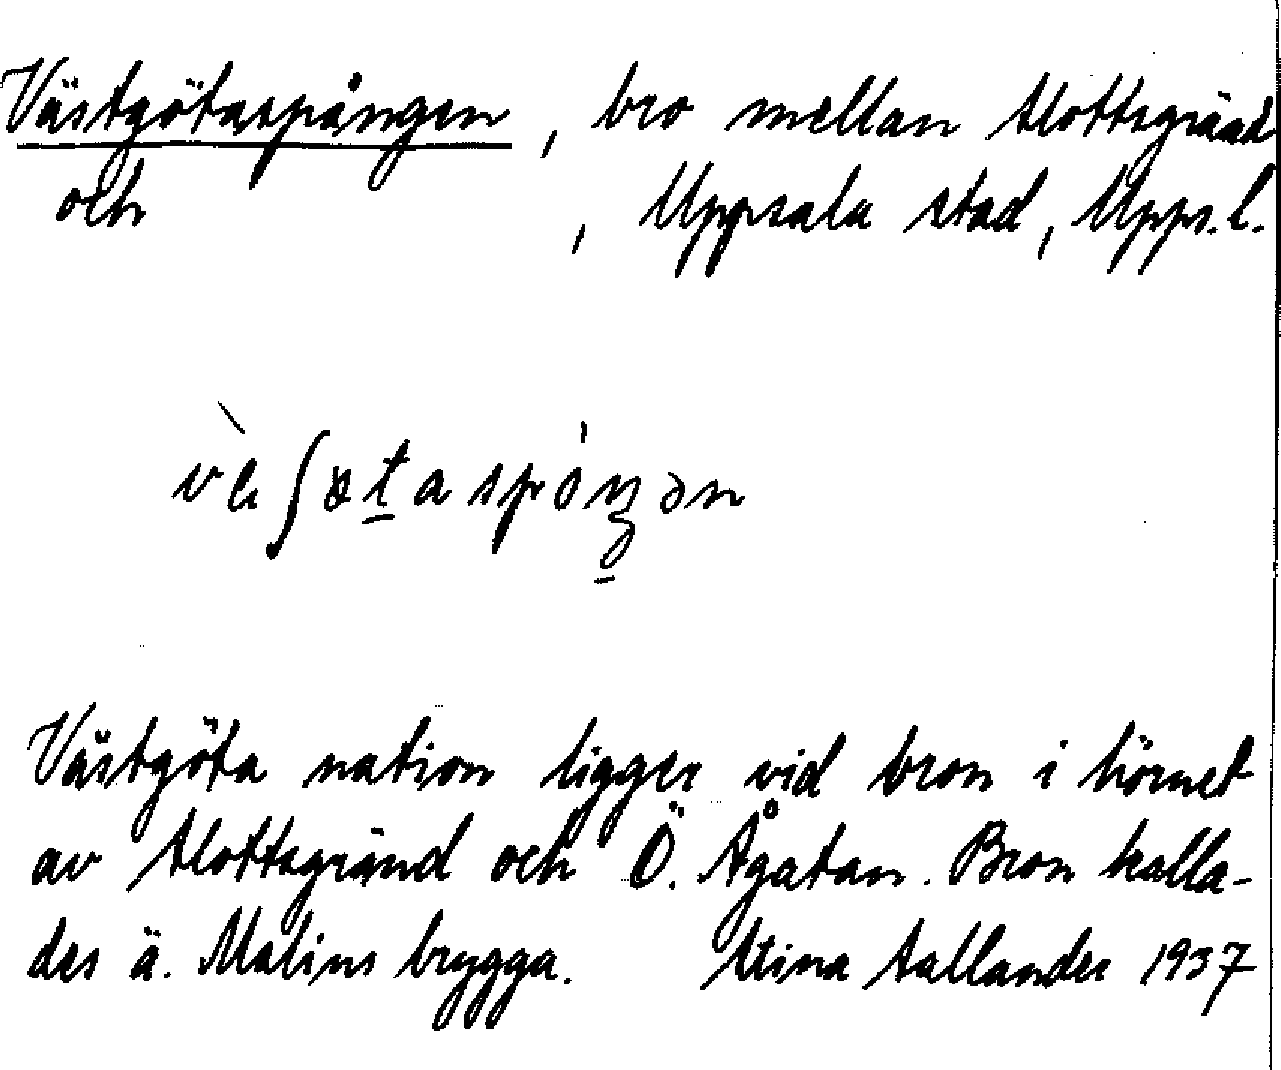 Västgötaspången, bro mellan Slottsgränd
och , Uppsala stad, Upps. l.
Västgöta nation ligger vid bron i hörnet
av Slottsgränd och Ö. Ågatan. Bron kalla-
des ä. Malins brygga. Stina Sallander 1937